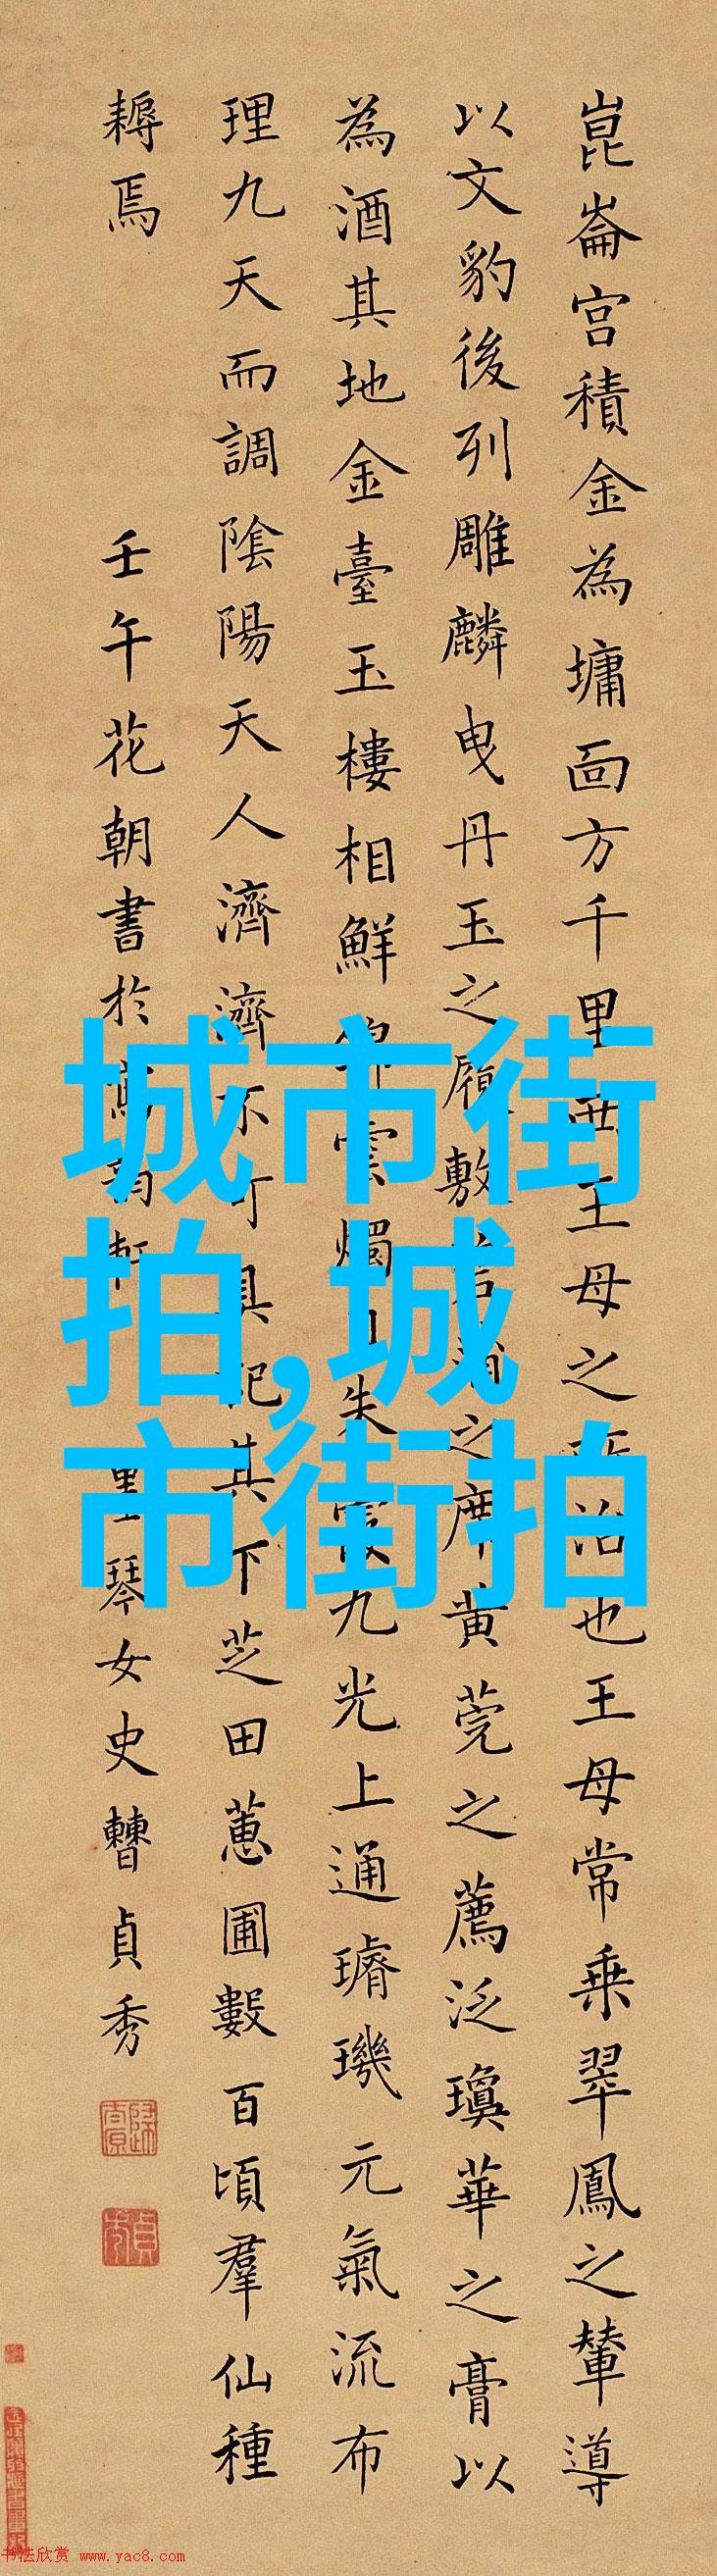 崑崙宮積金為墉面方千里西王母之所治也王母常乗翠鳳之輦導
以文豹後列雕麟曳丹玉之履敷碧蒲之席黄莞之薦泛瓊華之膏以
為酒其地金臺玉樓相鮮雲燭朱霞九光上通璿璣元氣流布
理九天而調陰陽天人濟濟不可具記其下芝田蕙圃數百頃羣仙種
耨焉
壬午花朝書於軒 琴女史曹貞秀
城市街
拍,城
市街拍
书法欣赏 www.yac8.com